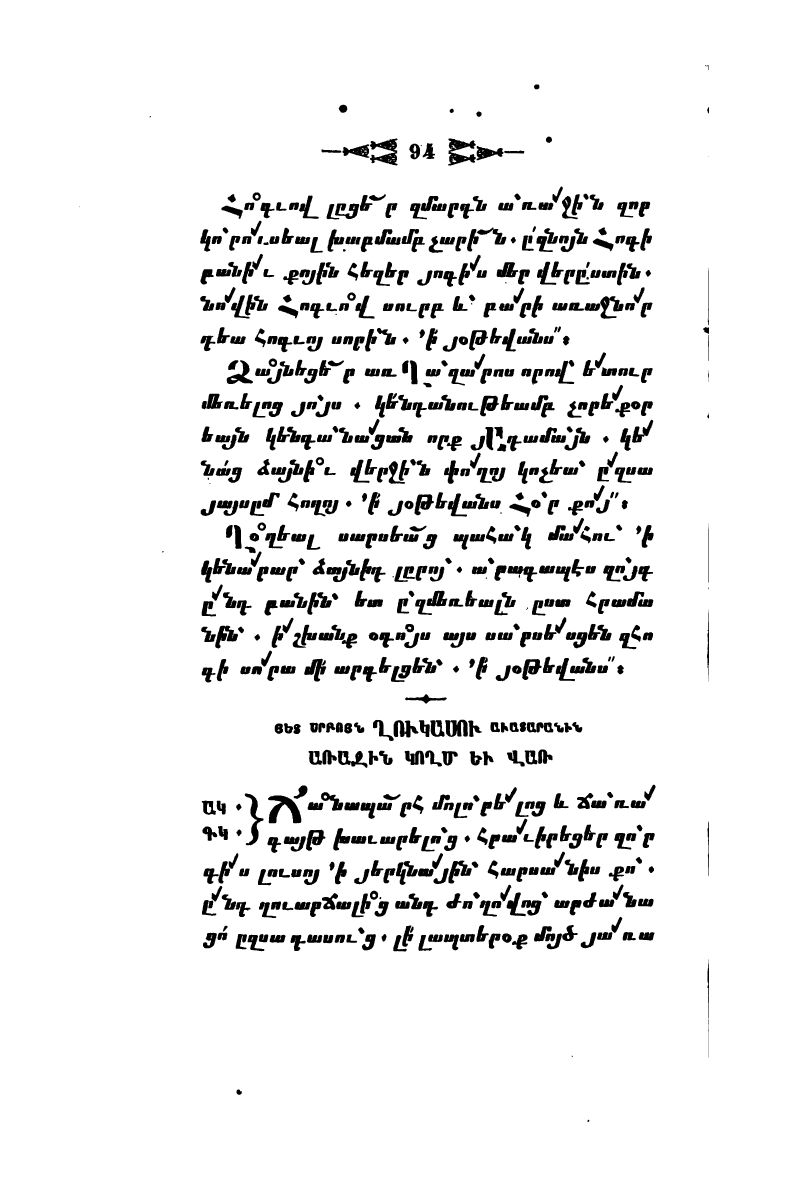 94
Հո՞գւով լըցե՜ր զմարգն ա՝ռա՛ջի՝ն զոր
կո՝րո՛ւսեալ խաբմամբ չարի՜ն․ ըզնոյն Հոգի
բանի՛ւ քոյին հեղեր յոգի՛ս մեր վերըստին․
նո՛վին Հոգւո՞վ սուրբ և՝ բա՛րի առաջնո՛ր
դեա հոգւոյ սորի՝ն․ ՚ի յօթեվանս՛՛։
Զա՞յնեցե՜ր առ Ղա՝զա՛րոս որով՝ ե՛տուր
մեռելոց յո՝յս․ կենդանութեամբ չորե՛քօր
եայն կենգա՝նա՛ցան որք յԸ՛դամա՝յն․ կե՛
նաց ձայնի՞ւ վերջի՝ն փո՛ղոյ կոչեա՝ ը՛զսա
յայսըմ հողոյ․ ՚ի յօթեվանս Հօ՝ր քո՛յ՛՛։
Ղօ՞ղեալ սարսեա՜ց պահա՝կ մա՛հու՝ ՚ի
կենա՛րար՝ ձայնիդ լըրոյ՝․ ա՝րագապէս զո՝յգ
ը՛նդ բանին՝ ետ ը՝զմեռեալն ըստ հրամա
նին՝․ ի՛շխանք օգո՞յս այս սա՝րսե՛սցեն զհո
գի սո՛րա մի արգելցեն՝․ ՚ի յօթեվանս՛՛։
ՅԵՏ ՍՐԲՈՅՆ ՂՈՒԿԱՍՈՒ ԱՒԵՏԱՐԱՆԻՆ
ԱՌԱՋԻՆ ԿՈՂՄ ԵՒ ՎԱՌ
ԱԿ․ Ճա՞նապա՜րհ մոլո՝րե՛լոց և ճա՝ռա՛
ԳԿ․ գայթ խաւարելո՝ց․ հրա՛ւիրեցեր զո՝ր
գի՛ս լուսոյ ՚ի յերկնա՛յին՝ հարսա՛նիս քո՝․
ը՛նդ զուարճալի՞ց անդ ժո՝ղո՛վոց՝ արժա՛նա
ցո՛ ըզսա դասու՝ց․ լի լապտերօք մոյծ յա՛ռա